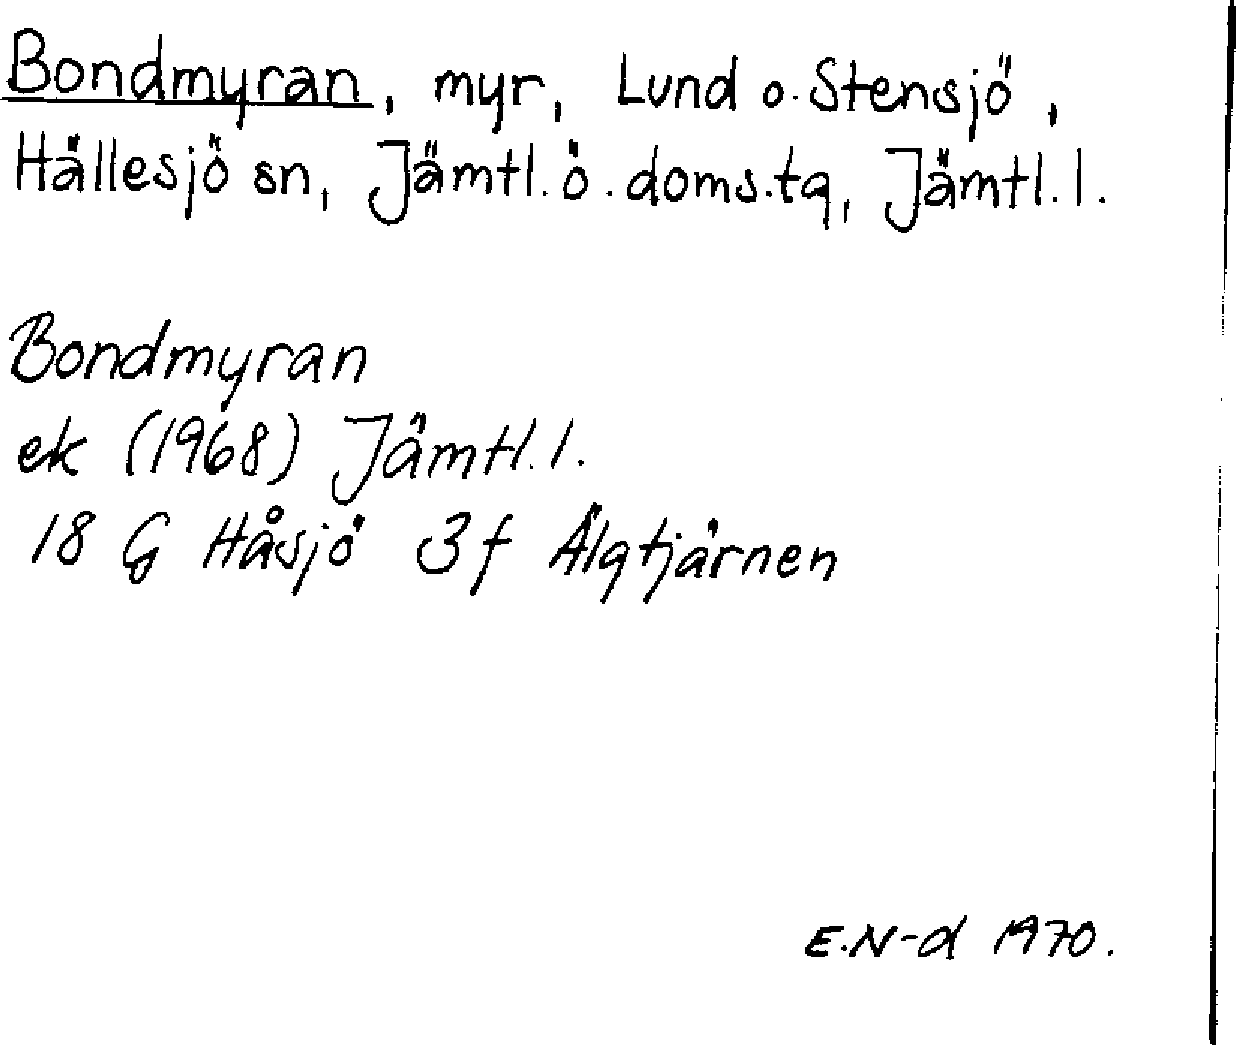 Bondmyran, myr, Lund o. Stensjö,
Hällesjö sn, Jämtl. ö. doms.tg, Jämtl. l.
Bondmyran
ek (1968) Jämtl. l.
18 G Håsjö 3f Älgtjärnen
E.N-d 1970.